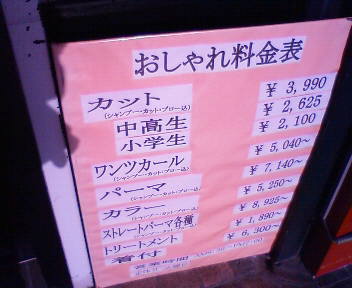 おしゃれ料金表
カット ¥ 3,990
(シャンプー・カット・ブロー込)
中高生 ¥ 2,625
小学生 ¥ 2,100
ワンツカール ¥ 5,040~
(シャンプー・カット・ブロー込)
パーマ ¥ 7,140~
(シャンプー・カット・ブロー込)
カラー ¥ 5,250~
(シャンプー・カット・ブロー込)
ストレートパーマ各種 ¥ 8,925~
(シャンプー・カット・ブロー込)
トリートメント ¥ 1,890~
着付 ¥ 6,300~
営業時間